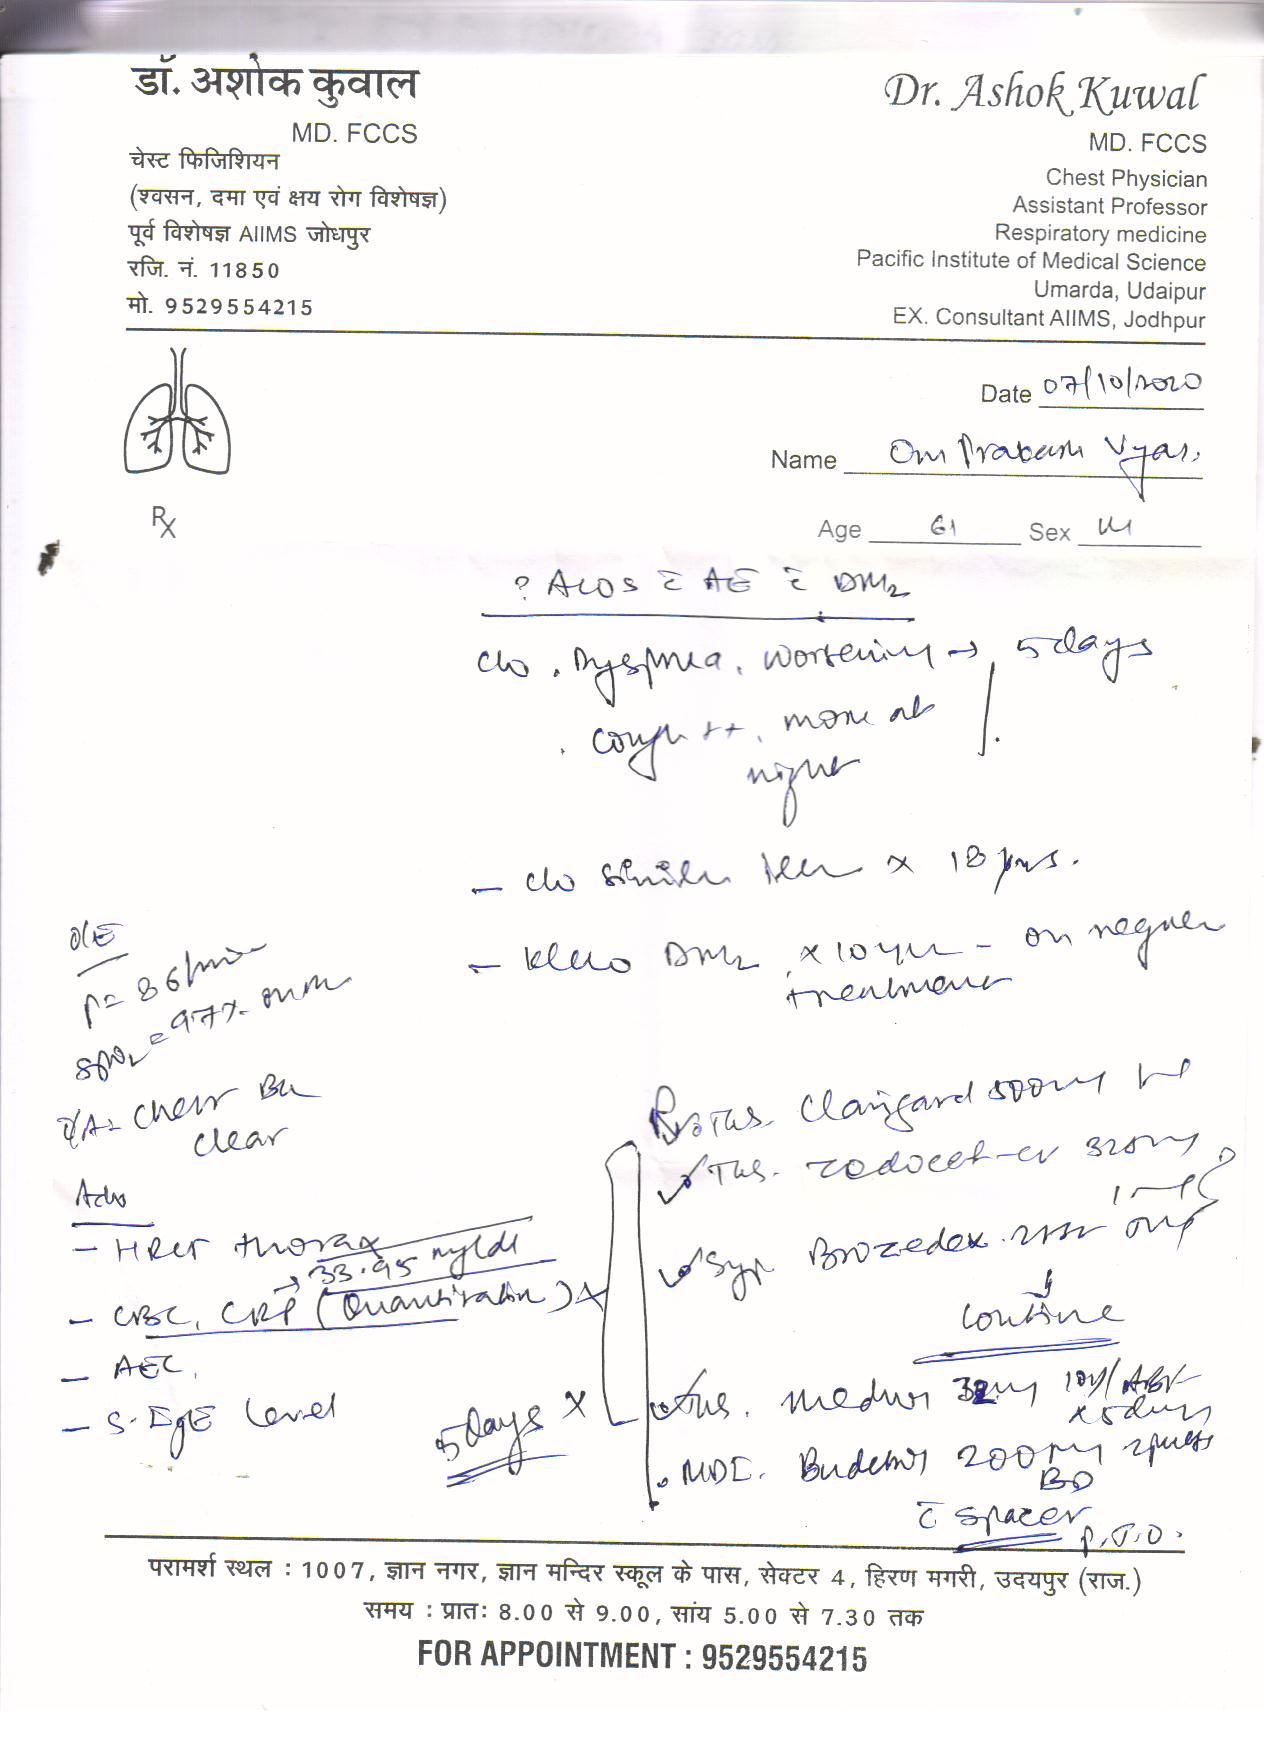 डॉ. अशोक कुवाल
MD. FCCS
चेस्ट फिजिशियन
(श्वसन, दमा एवं क्षय रोग विशेषज्ञ)
पूर्व विशेषज्ञ AIIMS जोधपुर
रजि. नं. 11850
मो. 9529554215
Dr. Ashok Kuwal
MD. FCCS
Chest Physician
Assistant Professor
Respiratory medicine
Pacific Institute of Medical Science
Umarda, Udaipur
EX. Consultant AIIMS, Jodhpur
Date 07/10/2020
Name Om Prakash Vyas.
Rx
Age 61 Sex M
? ACOS c̄ AE c̄ DM2
c/o . Dyspnea, worsening → 5 days
. Cough ++, more at
night
- c/o similar x 18 yrs.
- K/c/o DM2 x 10 yrs - on regular
treatment
O/E
P = 86/min
SpO2 = 97%
Chest B/L
clear
Adv
- HRCT thorax
→ 33.95 mg/dl
- CBC, CRP (Quantitative)
- AEC,
- S. IgE level
5 days x
Tab. Clarigard 500mg
Tab. 320mg
Syp. Brozedex
Continue
Tab. 32mg
x 5 days
. MDI. 200mg 2 puffs
BD
c̄ spacer
P.T.O.
परामर्श स्थल : 1007, ज्ञान नगर, ज्ञान मन्दिर स्कूल के पास, सेक्टर 4, हिरण मगरी, उदयपुर (राज.)
समय : प्रातः 8.00 से 9.00, सांय 5.00 से 7.30 तक
FOR APPOINTMENT : 9529554215